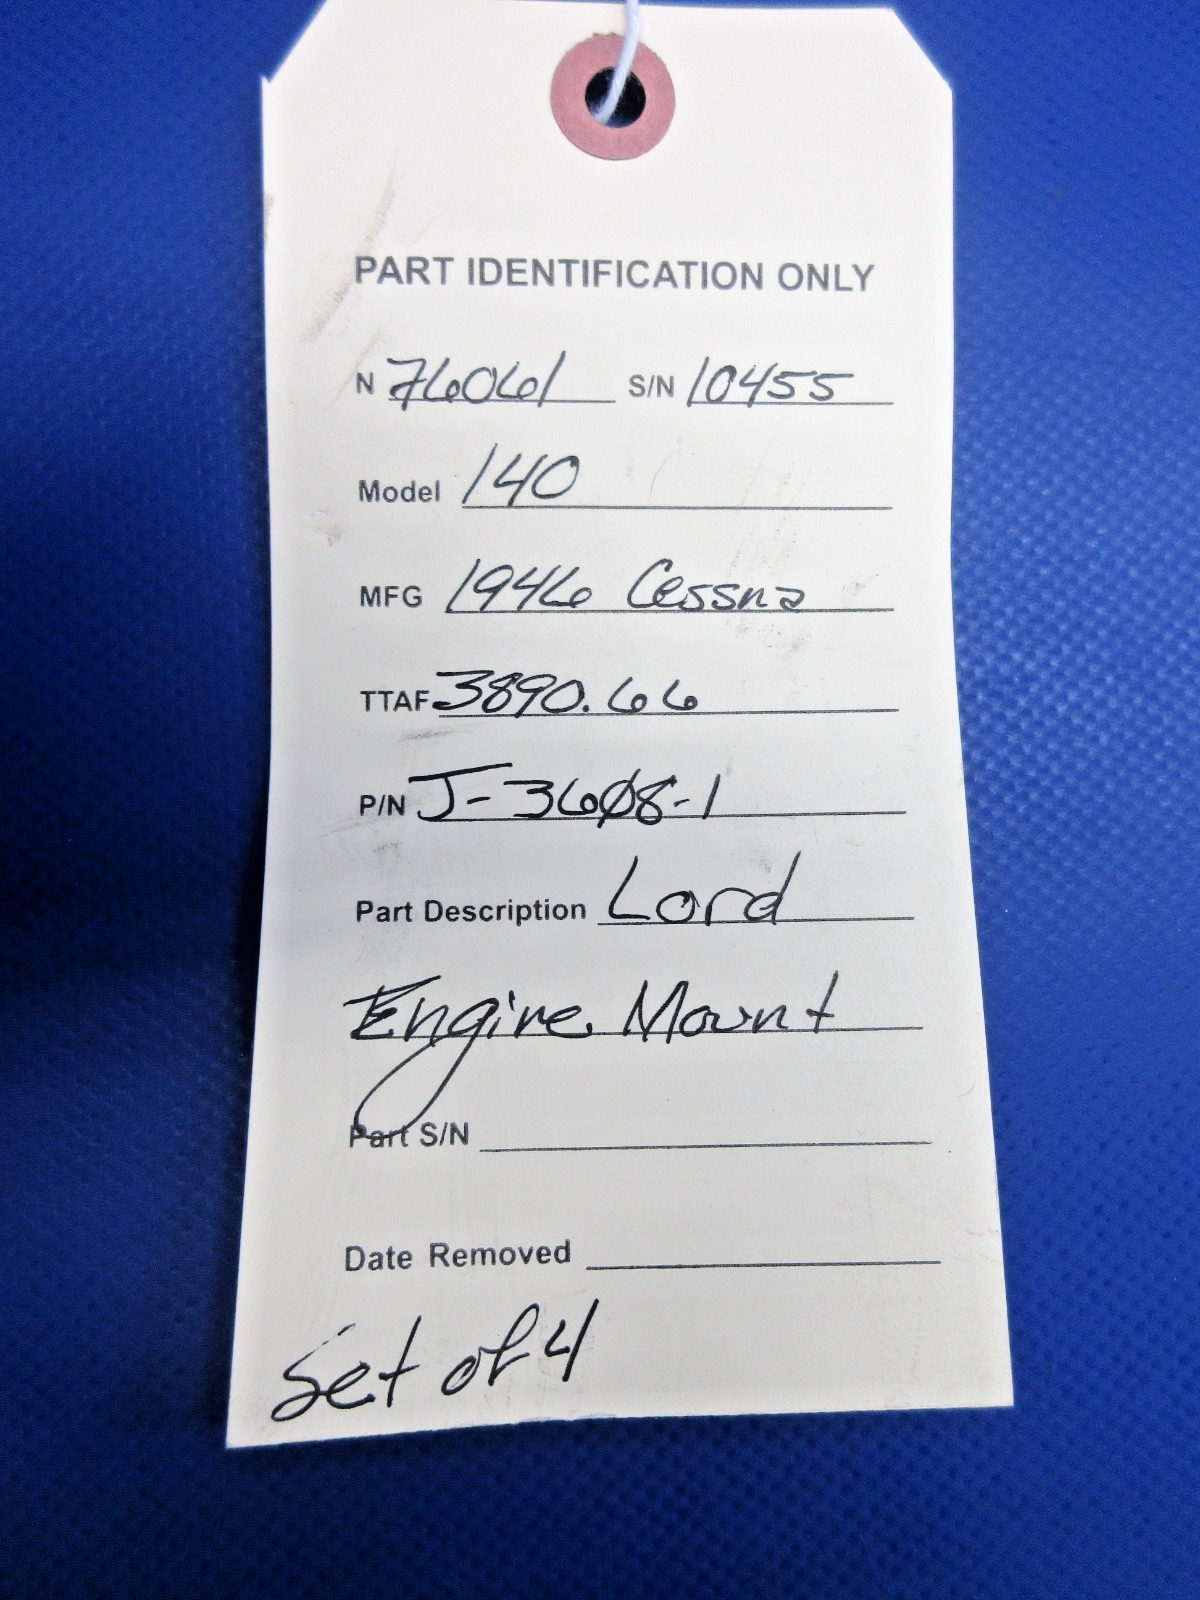 PART IDENTIFICATION ONLY
N 76061 S/N 10455
Model 140
MFG 1946 Cessna
TTAF 3890.66
P/N J-3608-1
Part Description Lord
Engine Mount
Part S/N
Date Removed
Set of 4